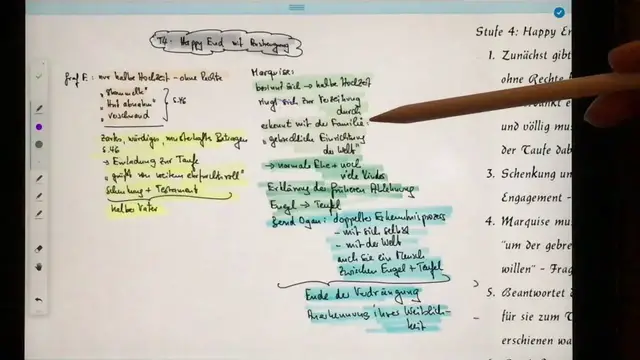 T4: Happy End mit Bedingung
Graf F.: nur halbe Hochzeit - ohne Rechte
"
"Hut abnahm"
verschwand
S.46
zartes, würdiges, musterhaftes Betragen
S.46
→ Einladung zur Taufe
"grüßt von weitem ehrfurchtsvoll"
Schenkung + Testament
halber Vater
Marquise:
besinnt sich → halbe Hochzeit
ringt sich zur Verzeihung
durch
erkennt mit der Familie:
"gebrechliche Einrichtung
der Welt"
→ normale Ehe + noch
viele Kinder
Erklärung der früheren Ablehnung
Engel → Teufel
Send Ogan: doppelter Erkenntnisprozess
- mit sich selbst
- mit der Welt
auch sie ein Mensch
zwischen Engel + Teufel
Ende der Verdrängung
Anerkennung ihrer Weiblich-
keit
Stufe 4: Happy En
1. Zunächst gibt
ohne Rechte
und völlig mus
der Taufe dab
3. Schenkung un
Engagement -
4. Marquise mu
"um der gebre
willen" - Frag
5. Beantwortet d
für sie zum T
erschienen wä